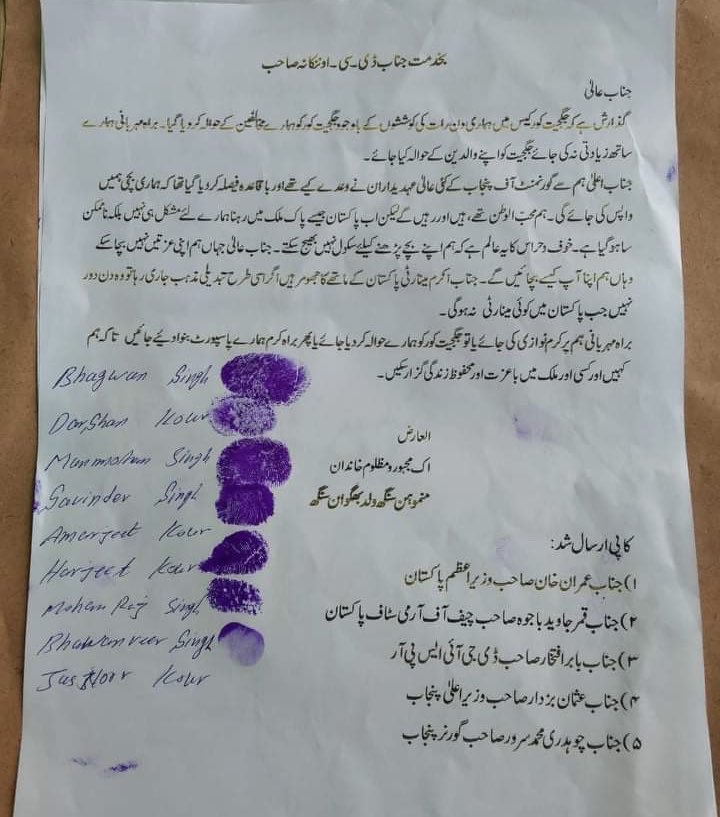 بخدمت جناب ڈی۔سی۔او ننکانہ صاحب
جناب عالیٰ
گذارش ہے کہ جگجیت کور کیس میں ہماری دن رات کی کوششوں کے باوجود جگجیت کور کو ہمارے مخالفین کے حوالہ کر دیا گیا۔ براہ مہربانی ہمارے
ساتھ زیادتی نہ کی جائے جگجیت کو اپنے والدین کے حوالہ کیا جائے۔
جناب اعلیٰ ہم سے گورنمنٹ آف پنجاب کے کئی عالی عہدیداران نے وعدے کیے تھے اور باقاعدہ فیصلہ کر دیا گیا تھا کہ ہماری بچی ہمیں
واپس کی جائے گی۔ ہم محب الوطن تھے، ہیں اور رہیں گے لیکن اب پاکستان جیسے پاک ملک میں رہنا ہمارے لئے مشکل ہی نہیں بلکہ ناممکن
سا ہو گیا ہے۔ خوف و حراس کا یہ عالم ہے کہ ہم اپنے بچے پڑھنے کیلئے سکول نہیں بھیج سکتے۔ جناب عالیٰ جہاں ہم اپنی عزتیں نہیں بچا سکے
وہاں ہم اپنا آپ کیسے بچائیں گے۔ جناب اکرم مینارٹی پاکستان کے ماتھے کا جھومر ہیں اگر اسی طرح تبدیلی مذہب جاری رہا تو وہ دن دور
نہیں جب پاکستان میں کوئی مینارٹی نہ ہوگی۔
براہ مہربانی ہم پر کرم نوازی کی جائے یا تو جگجیت کور کو ہمارے حوالہ کر دیا جائے یا پھر براہ کرم ہمارے پاسپورٹ بنوا دیئے جائیں تاکہ ہم
کہیں اور کسی اور ملک میں باعزت اور محفوظ زندگی گزار سکیں۔
Bhagwan Singh
Darshan Kour
Manmohan Singh
Savinder Singh
Amarjeet Kour
Harjeet Kour
Mohan Singh
Bhawanveer Singh
Kour
العارض
اک مجبور و مظلوم خاندان
منموہن سنگھ ولد بھگوان سنگھ
کاپی ارسال شد:
۱) جناب عمران خان صاحب وزیراعظم پاکستان
۲) جناب قمر جاوید باجوہ صاحب چیف آف آرمی سٹاف پاکستان
۳) جناب بابر افتخار صاحب ڈی جی آئی ایس پی آر
۴) جناب عثمان بزدار صاحب وزیر اعلیٰ پنجاب
۵) جناب چوہدری محمد سرور صاحب گورنر پنجاب